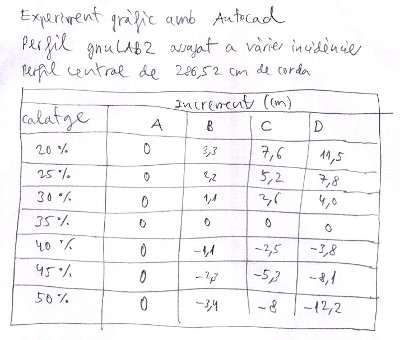 Experiment gràfic amb Autocad
Perfil gnuLAB2 assajat a vàries incidències
Perfil central de 286,52 cm de corda
Increment (cm)
calatge A B C D
20 % 0 3,3 7,6 11,5
25 % 0 2,2 5,2 7,8
30 % 0 1,1 2,6 4,0
35 % 0 0 0 0
40 % 0 -1,1 -2,5 -3,8
45 % 0 -2,3 -5,3 -8,1
50 % 0 -3,4 -8 -12,2